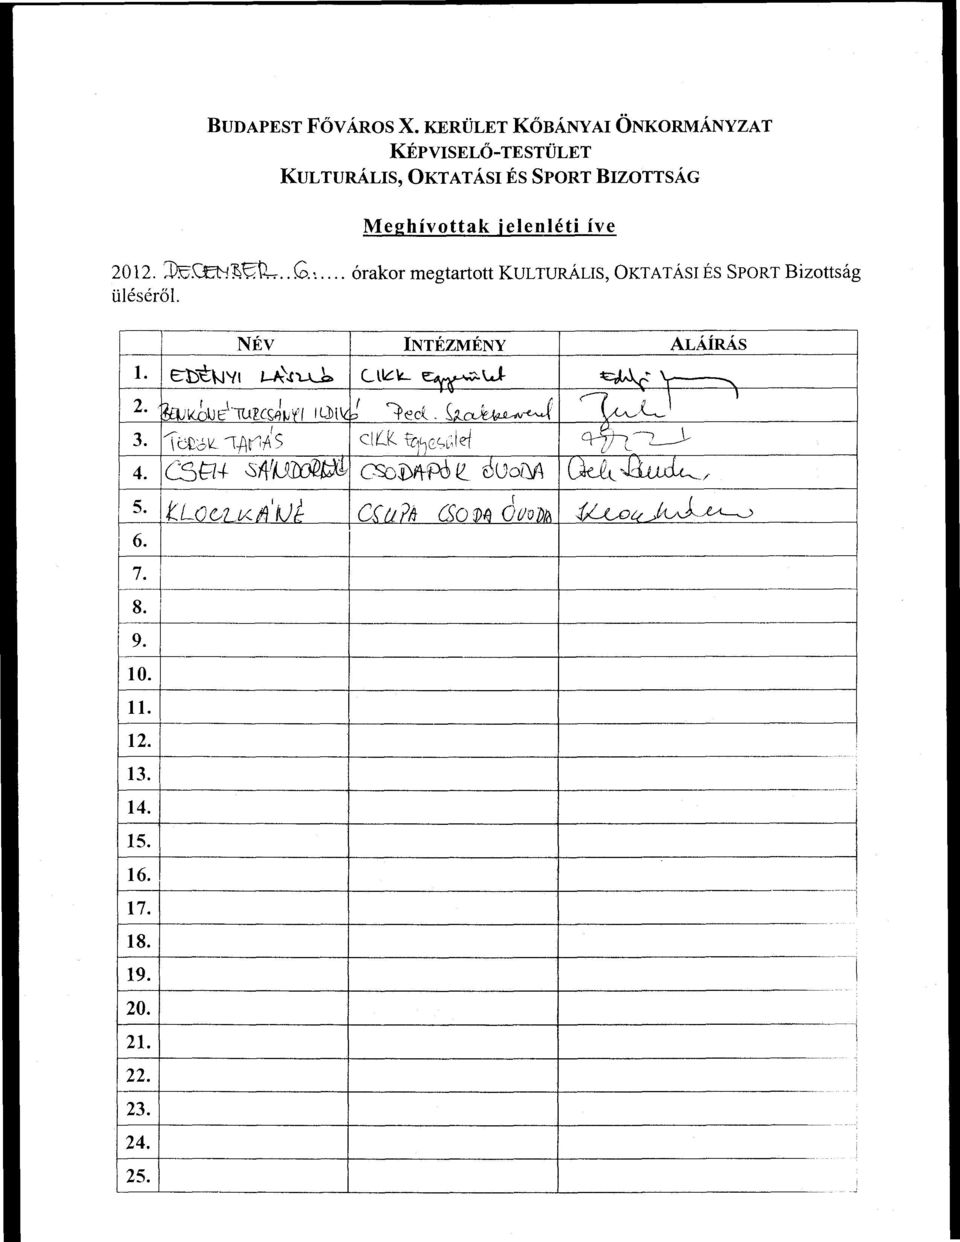 BUDAPEST FŐVÁROS X. KERÜLET KŐBÁNYAI ÖNKORMÁNYZAT
KÉPVISELŐ-TESTÜLET
KULTURÁLIS, OKTATÁSI ÉS SPORT BIZOTTSÁG
Meghívottak jelenléti íve
2012. DECEMBER..6...... órakor megtartott KULTURÁLIS, OKTATÁSI ÉS SPORT Bizottság
üléséről.
NÉV INTÉZMÉNY ALÁÍRÁS
1. EDÉNYI LÁSZLÓ CIKK Egyesület
2. BENKŐNÉ TURCSÁNYI ILDIKÓ Ped. Szakszervezet
3. TÖRÖK TAMÁS CIKK Egyesület
4. CSEH SÁNDORNÉ CSODAPÓK ÓVODA Cseh Sándorné
5. KLOCZKÁNÉ CSUPA CSODA ÓVODA
6.
7.
8.
9.
10.
11.
12.
13.
14.
15.
16.
17.
18.
19.
20.
21.
22.
23.
24.
25.